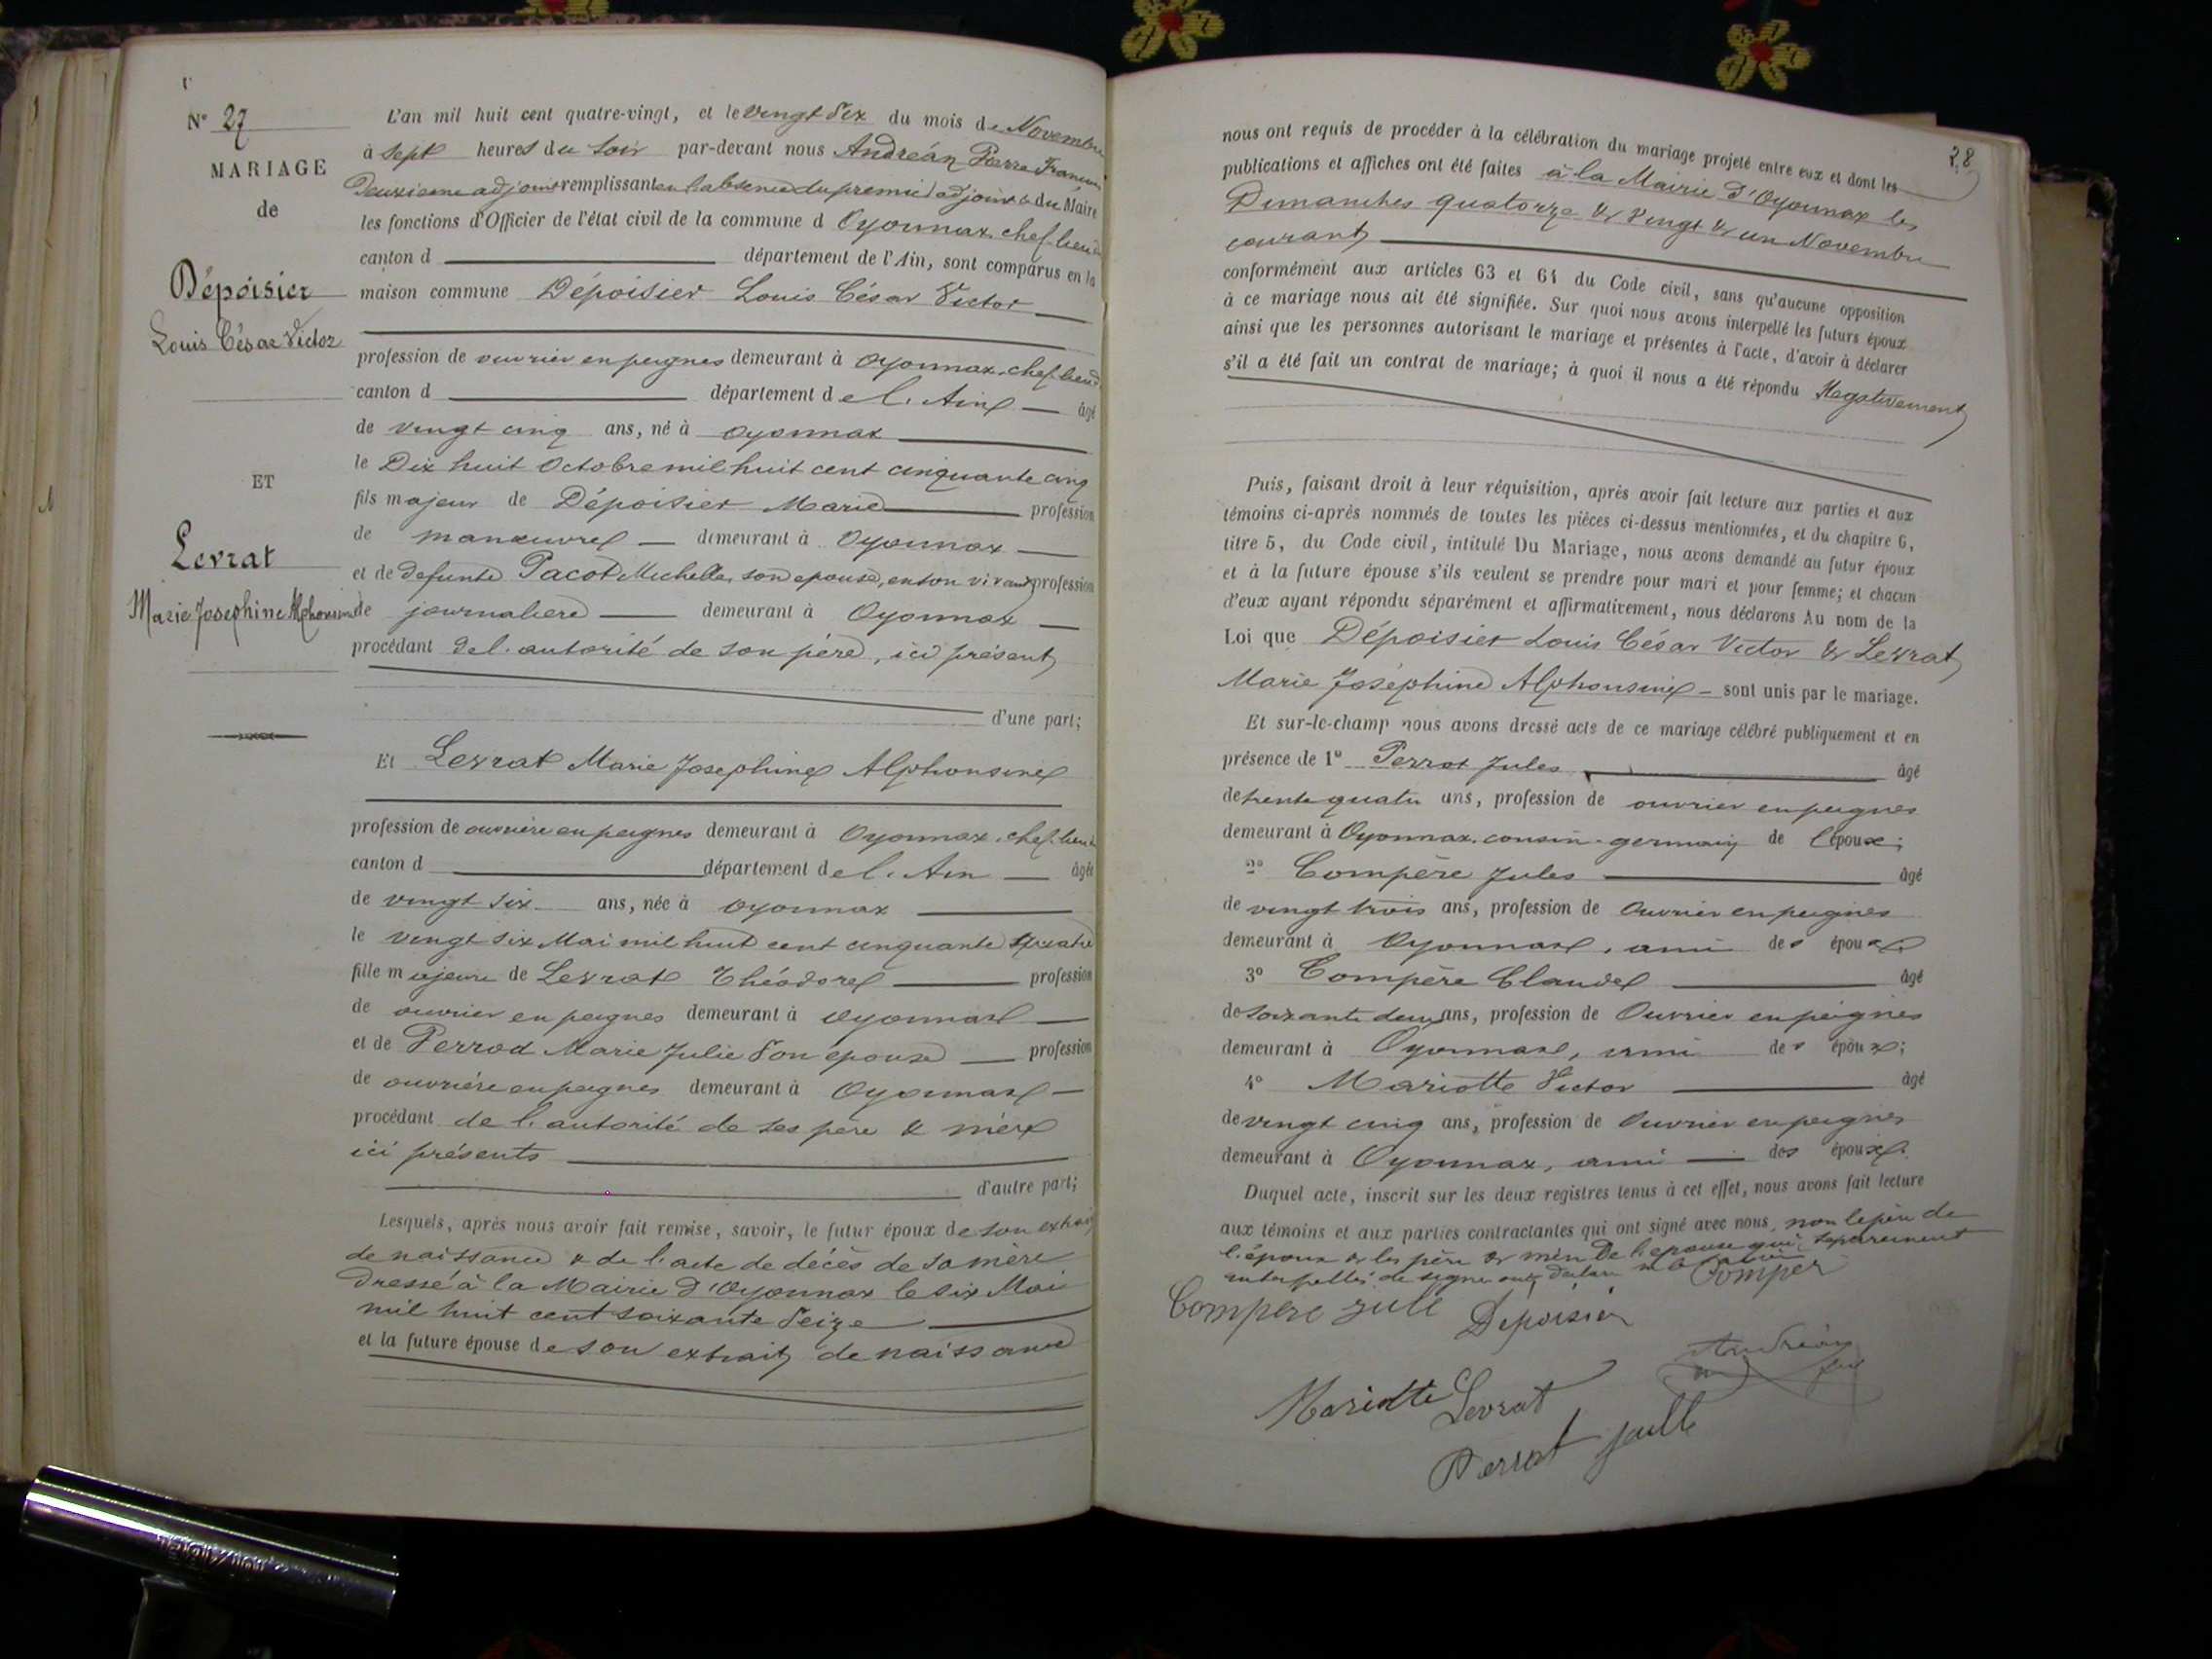 N° 27
MARIAGE
de
Dépoisier
Louis César Victor
ET
Levrat
Marie Josephine Alphonsine
L'an mil huit cent quatre-vingt, et le vingt Six du mois de Novembre
à sept heures du soir par-devant nous Andréan Pierre François
Deuxieme adjoint remplissant en l'absence du premier adjoint & du Maire
les fonctions d'Officier de l'état civil de la commune d Oyonnax chef lieu de
canton d département de l'Ain, sont comparus en la
maison commune Dépoisier Louis César Victor
profession de ouvrier en peignes demeurant à Oyonnax, chef-lieu de
canton d département de l'Ain âgé
de vingt cinq ans, né à Oyonnax
le Dix huit Octobre mil huit cent cinquante cinq
fils majeur de Dépoisier Marie profession
de manœuvre demeurant à Oyonnax
et de defunte Pacot Michelle, son epouse, en son vivant profession
de journaliere demeurant à Oyonnax
procédant de l'autorité de son père, ici présent
d'une part;
Et Levrat Marie Josephine Alphonsine
profession de ouvrière en peignes demeurant à Oyonnax, chef-lieu de
canton d département de l'Ain âgée
de vingt six ans, née à Oyonnax
le vingt six Mai mil huit cent cinquante quatre
fille majeure de Levrat Théodore profession
de ouvrier en peignes demeurant à Oyonnax
et de Perrod Marie Julie son épouse profession
de ouvrière en peignes demeurant à Oyonnax
procédant de l'autorité de ses père & mère
ici présents
d'autre part;
Lesquels, après nous avoir fait remise, savoir, le futur époux de son extrait
de naissance & de l'acte de décès de sa mère
dressé à la Mairie d'Oyonnax le six Mai
mil huit cent soixante Seize
et la future épouse de son extrait de naissance
28
nous ont requis de procéder à la célébration du mariage projeté entre eux et dont les
publications et affiches ont été faites à la Mairie d'Oyonnax les
Dimanches quatorze & vingt & un Novembre
courant
conformément aux articles 63 et 64 du Code civil, sans qu'aucune opposition
à ce mariage nous ait été signifiée. Sur quoi nous avons interpellé les futurs époux
ainsi que les personnes autorisant le mariage et présentes à l'acte, d'avoir à déclarer
s'il a été fait un contrat de mariage; à quoi il nous a été répondu Négativement
Puis, faisant droit à leur réquisition, après avoir fait lecture aux parties et aux
témoins ci-après nommés de toutes les pièces ci-dessus mentionnées, et du chapitre 6,
titre 5, du Code civil, intitulé Du Mariage, nous avons demandé au futur époux
et à la future épouse s'ils veulent se prendre pour mari et pour femme; et chacun
d'eux ayant répondu séparément et affirmativement, nous déclarons Au nom de la
Loi que Dépoisier Louis César Victor & Levrat
Marie Joséphine Alphonsine sont unis par le mariage.
Et sur-le-champ nous avons dressé acte de ce mariage célébré publiquement et en
présence de 1° Perrot Jules âgé
de trente quatre ans, profession de ouvrier en peignes
demeurant à Oyonnax, cousin-germain de l'époux;
2° Compère Jules âgé
de vingt trois ans, profession de Ouvrier en peignes
demeurant à Oyonnax, ami des époux
3° Compère Claude âgé
de soixante deux ans, profession de Ouvrier en peignes
demeurant à Oyonnax, ami des époux;
4° Mariotte Victor âgé
de vingt cinq ans, profession de Ouvrier en peignes
demeurant à Oyonnax, ami des époux.
Duquel acte, inscrit sur les deux registres tenus à cet effet, nous avons fait lecture
aux témoins et aux parties contractantes qui ont signé avec nous, non le père de
l'époux & les père & mère De l'epouse qui séparément
interpellés de signer ont déclaré ne le savoir
Comper
Compere Jule Dépoisier
Andréan
Mariotte Levrat
Perrot Jule